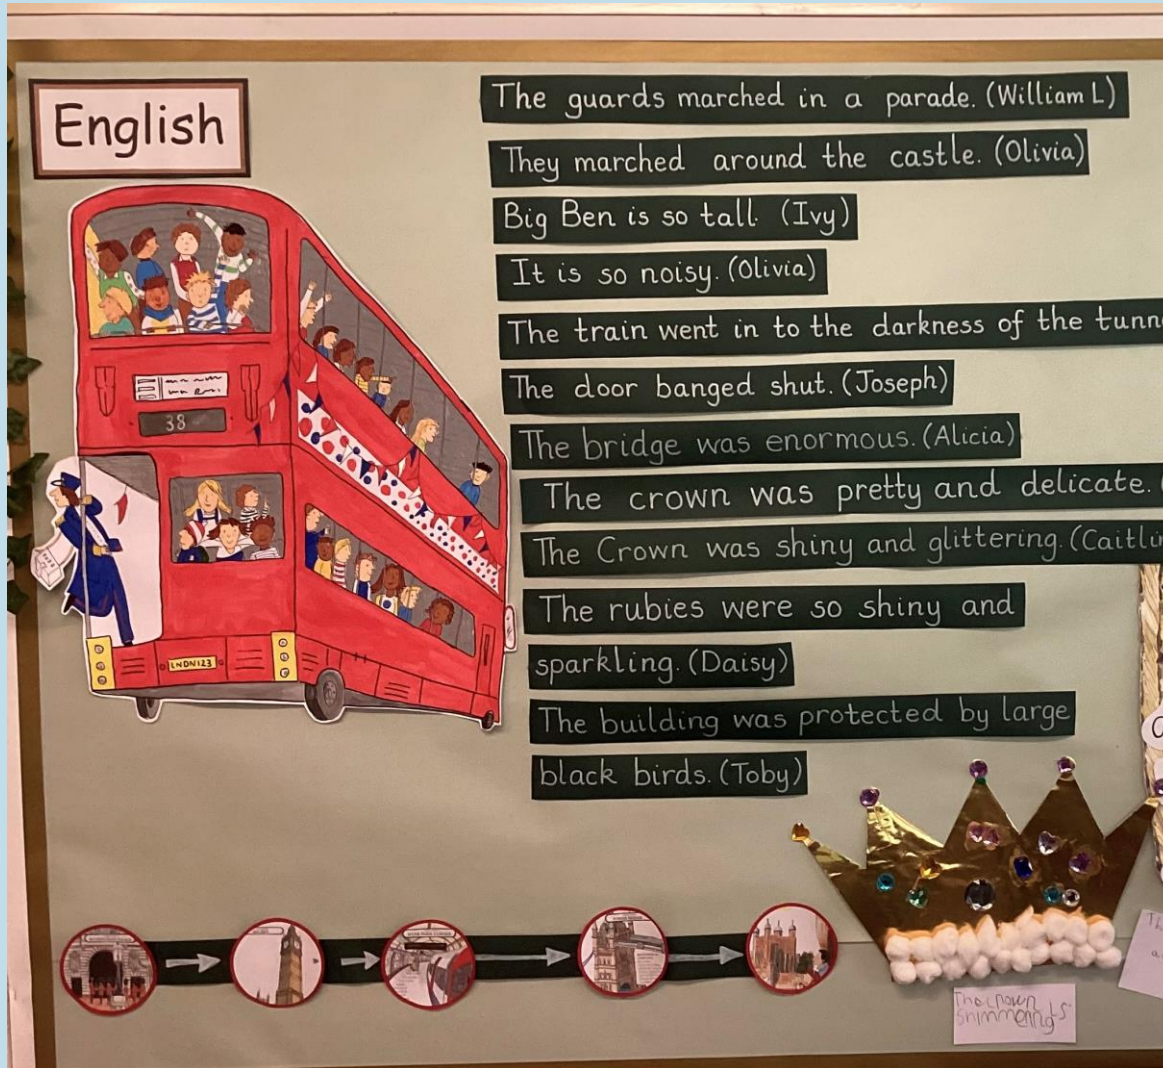 English
The guards marched in a parade. (William L)
They marched around the castle. (Olivia)
Big Ben is so tall. (Ivy)
It is so noisy. (Olivia)
The train went in to the darkness of the
The door banged shut. (Joseph)
The bridge was enormous. (Alicia)
The crown was pretty and delicate.
The Crown was shiny and glittering. (Caitlin
The rubies were so shiny and
sparkling. (Daisy)
The building was protected by large
black birds. (Toby)
38
LNDN123
The crown
shimmering